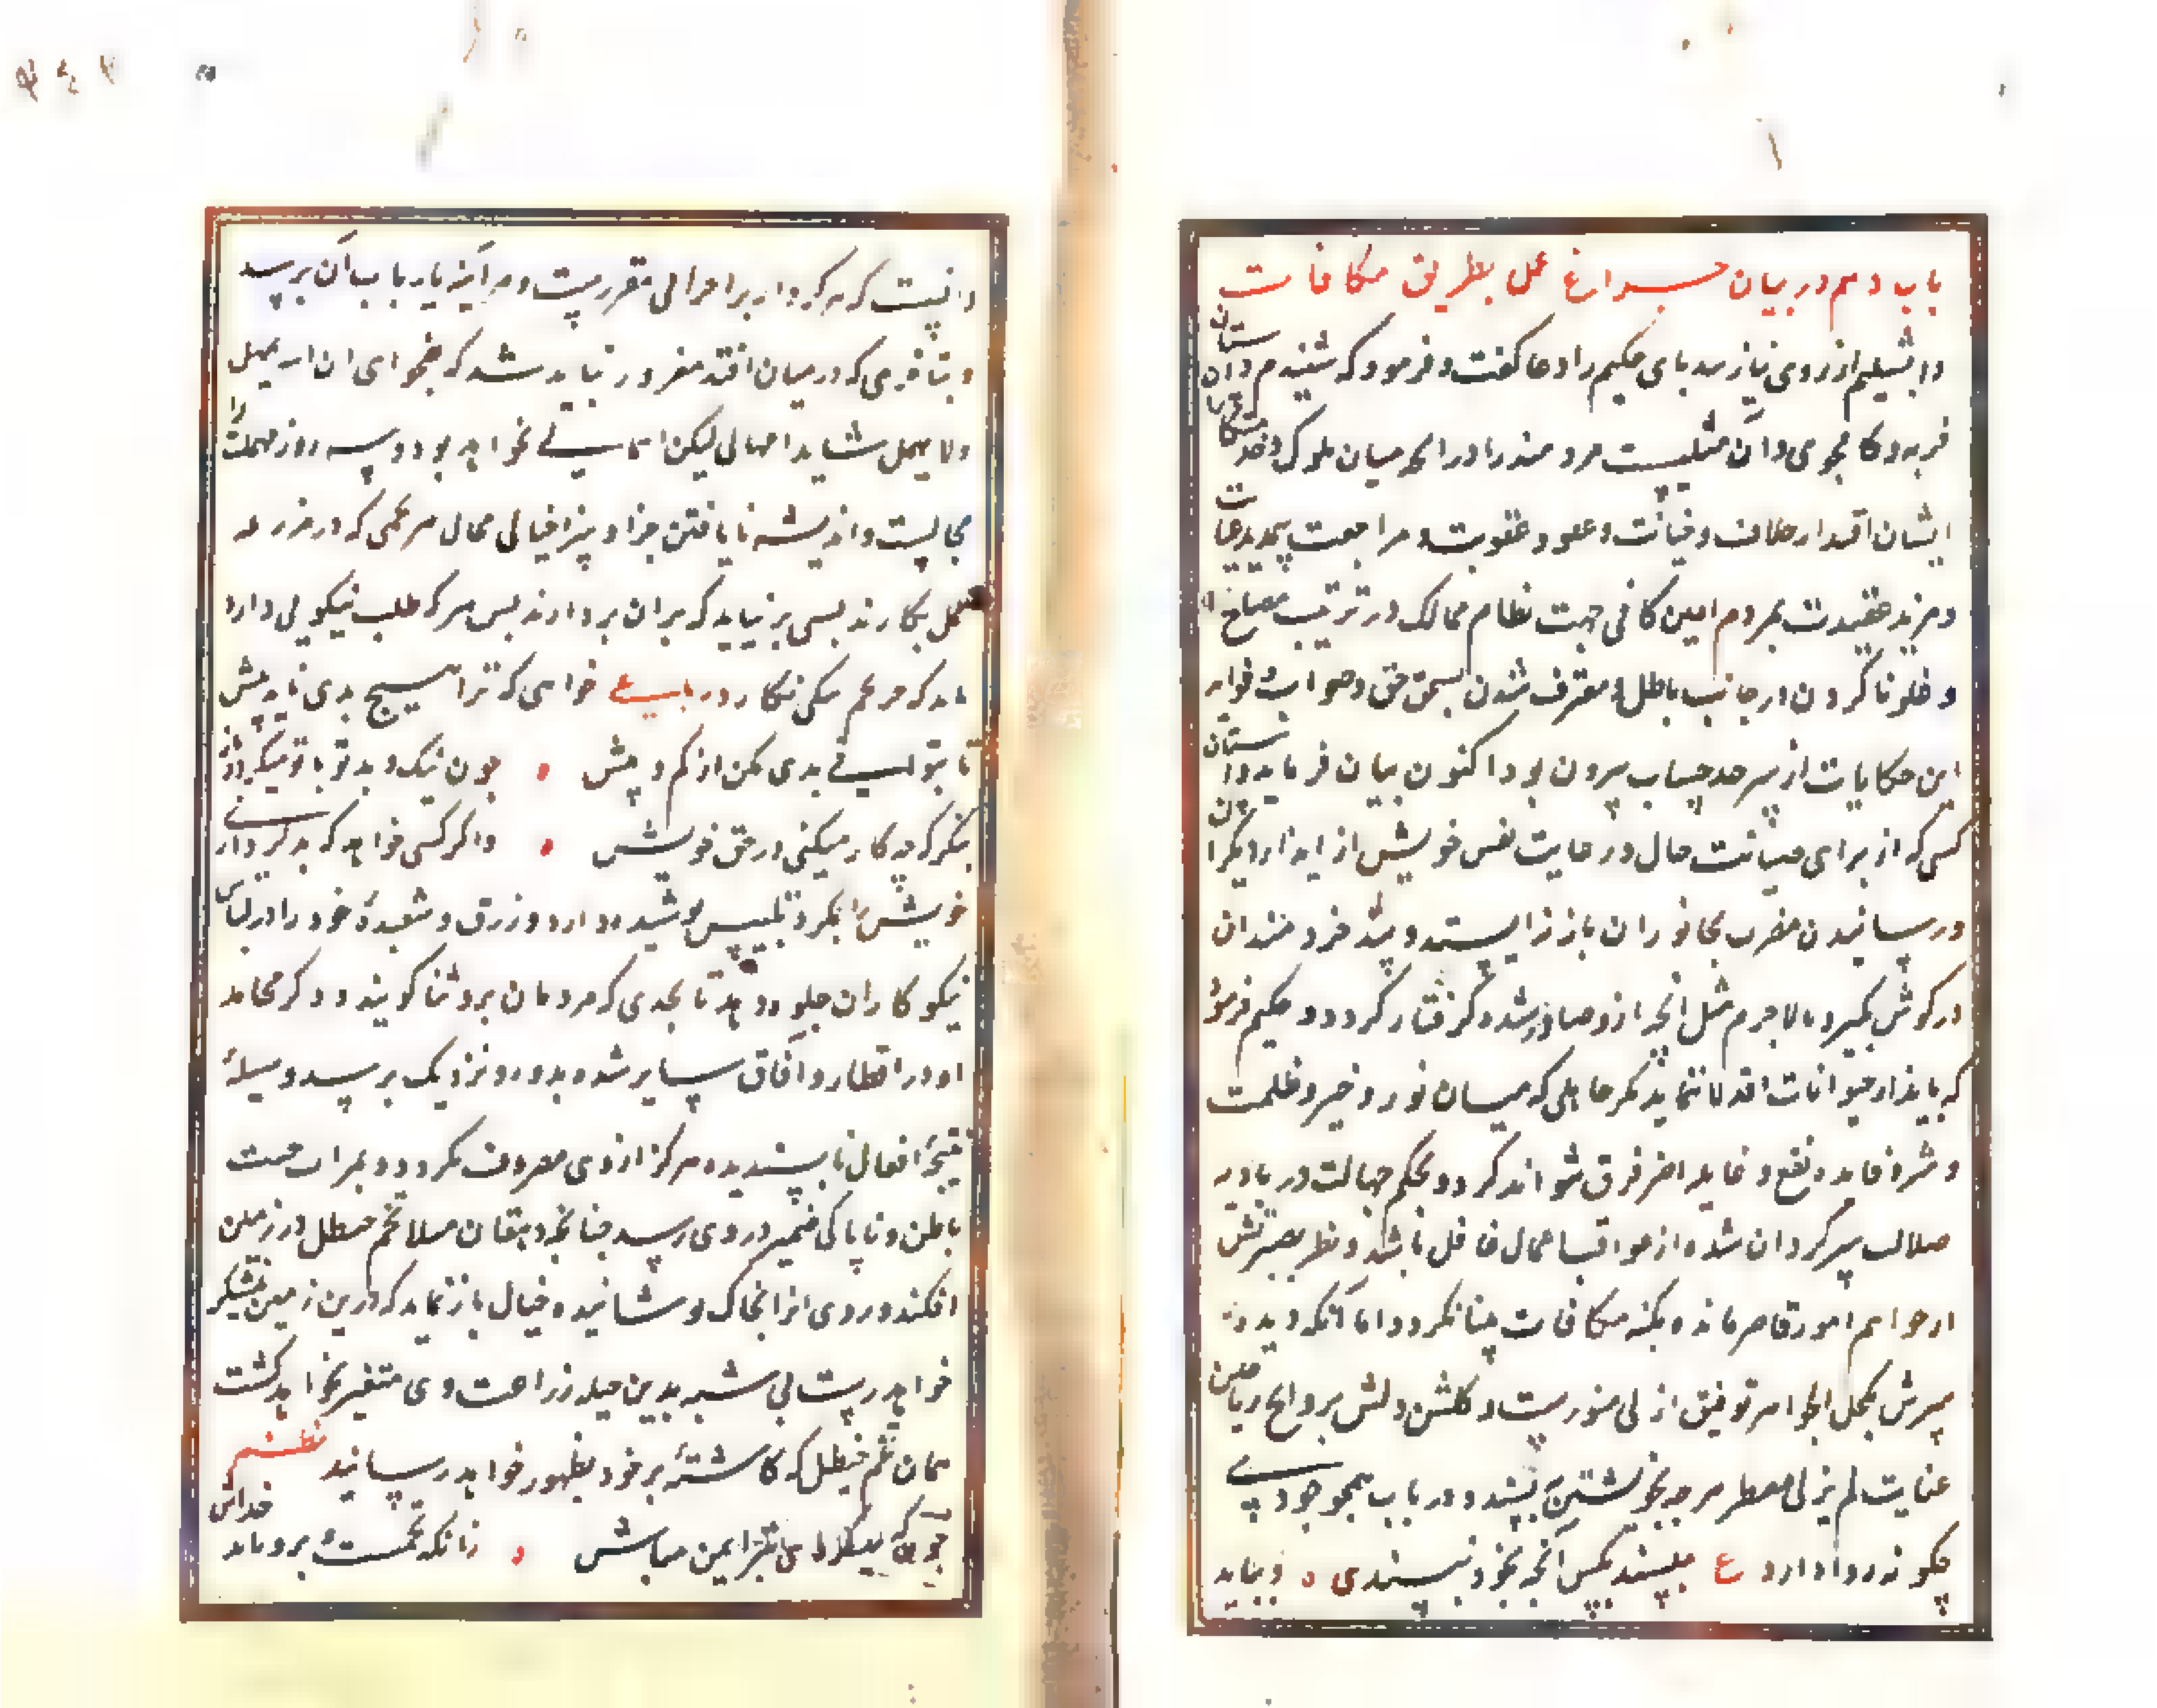 باب دهم در بیان جزای عمل بطریق مکافات
دابشلیم از روی نیاز بیدپای حکیم را دعا گفت و فرمود که شنیدم داستان
فریه و کامجوی و آن مثلیست مر و در انچه میان ملوک و خدمتکاران
ایشان از خلاف و خیانت و عفو و عقوبت و مراجعت بتجدید عنایت
و مزید عقیدت بمردم امین کافی جهت نظام ممالک در ترتیب مصالح
و گردن از جانب باطل و معترف شدن بسمت حق و صواب فواید
این حکایات از سرحد حساب بیرون بود اکنون بیان فرماید داستان
کسی که از برای صیانت حال و رعایت نفس خویش از ایذای دیگران
و رسانیدن مضرت بجانوران باز نه ایستد و پند خردمندان
در گوش نگیرد تا لاجرم مثل انچه ازو صادر شده گرفتار گردد حکیم فرمود
که بایذای حیوانات اقدام ننماید مگر جاهلی که میان نور و خیر و ظلمت
و شر و فایده و نفع و ضر فرق نتواند کرد و بحکم جهالت در بادیه
ضلالت سرگردان شده از عواقب اعمال غافل باشد و نظر بصیرتش
از خواتیم امور قاصر مانده بکنه مکافات بینا نگردد اما آنکه دیده
بکحل الجواهر توفیق ازلی منورست و گلشن دلش بروایح ریاحین
عنایت لم یزلی معطر هر چه بخویشتن نپسندد در باب همجو خودی
چگونه روا دارد ع مپسند بکس آنچه بخود نپسندی و بباید
دانست که هر کرداری را جزایی مقررست و هرآینه بارباب آن برسد
و بتاخیری که در میان افتد مغرور نباید شد که فحوای ان الله یمهل
و لا یهمل شاید امهالی لیکن اهمالی نخواهد بود دو سه روز مهلت را
مجالیست و اندیشه نایافتن جزا و سزا خیالی محال هر تخمی که در مزرعه
عمل بکارند بسی برنیاید که بر آن بردارند پس هر که طلب نیکویی دارد
باید که جز تخم نیکی نکارد رباعی خواهی که ترا هیچ بدی ناید پیش
تا بتوانی بدی مکن از کم و بیش چون نیک و بد تو با تو میگردد باز
بنگر که چه کار میکنی در حق خویش و اگر کسی خواهد که بدکرداری
خویش را بمکر و تلبیس پوشیده دارد و زرق و شعبده خود را در لباس
نیکوکاران جلوه دهد تا بحدی که مردمان برو ثنا گویند و ذکر محامد
او در اقطار و آفاق سایر شده بدور و نزدیک برسد وسیله
نتیجه افعال ناپسندیده هرگز از وی مصروف نگردد و ثمرات خبث
باطن و ناپاکی ضمیر در وی رسد چنانچه دهقان مثلا تخم حنظل در زمین
افکند و روی انرا بخاک پوشانیده خیال باز نماید که درین زمین نیشکر
خواهد رست بی شبهه بدین حیله زراعت وی متغیر نخواهد گشت
همان تخم حنظل که کاشته بر خود بظهور خواهد رسانید نظم
چون که بد کردی بترس ایمن مباش زانکه تخمست و برویاند خداش